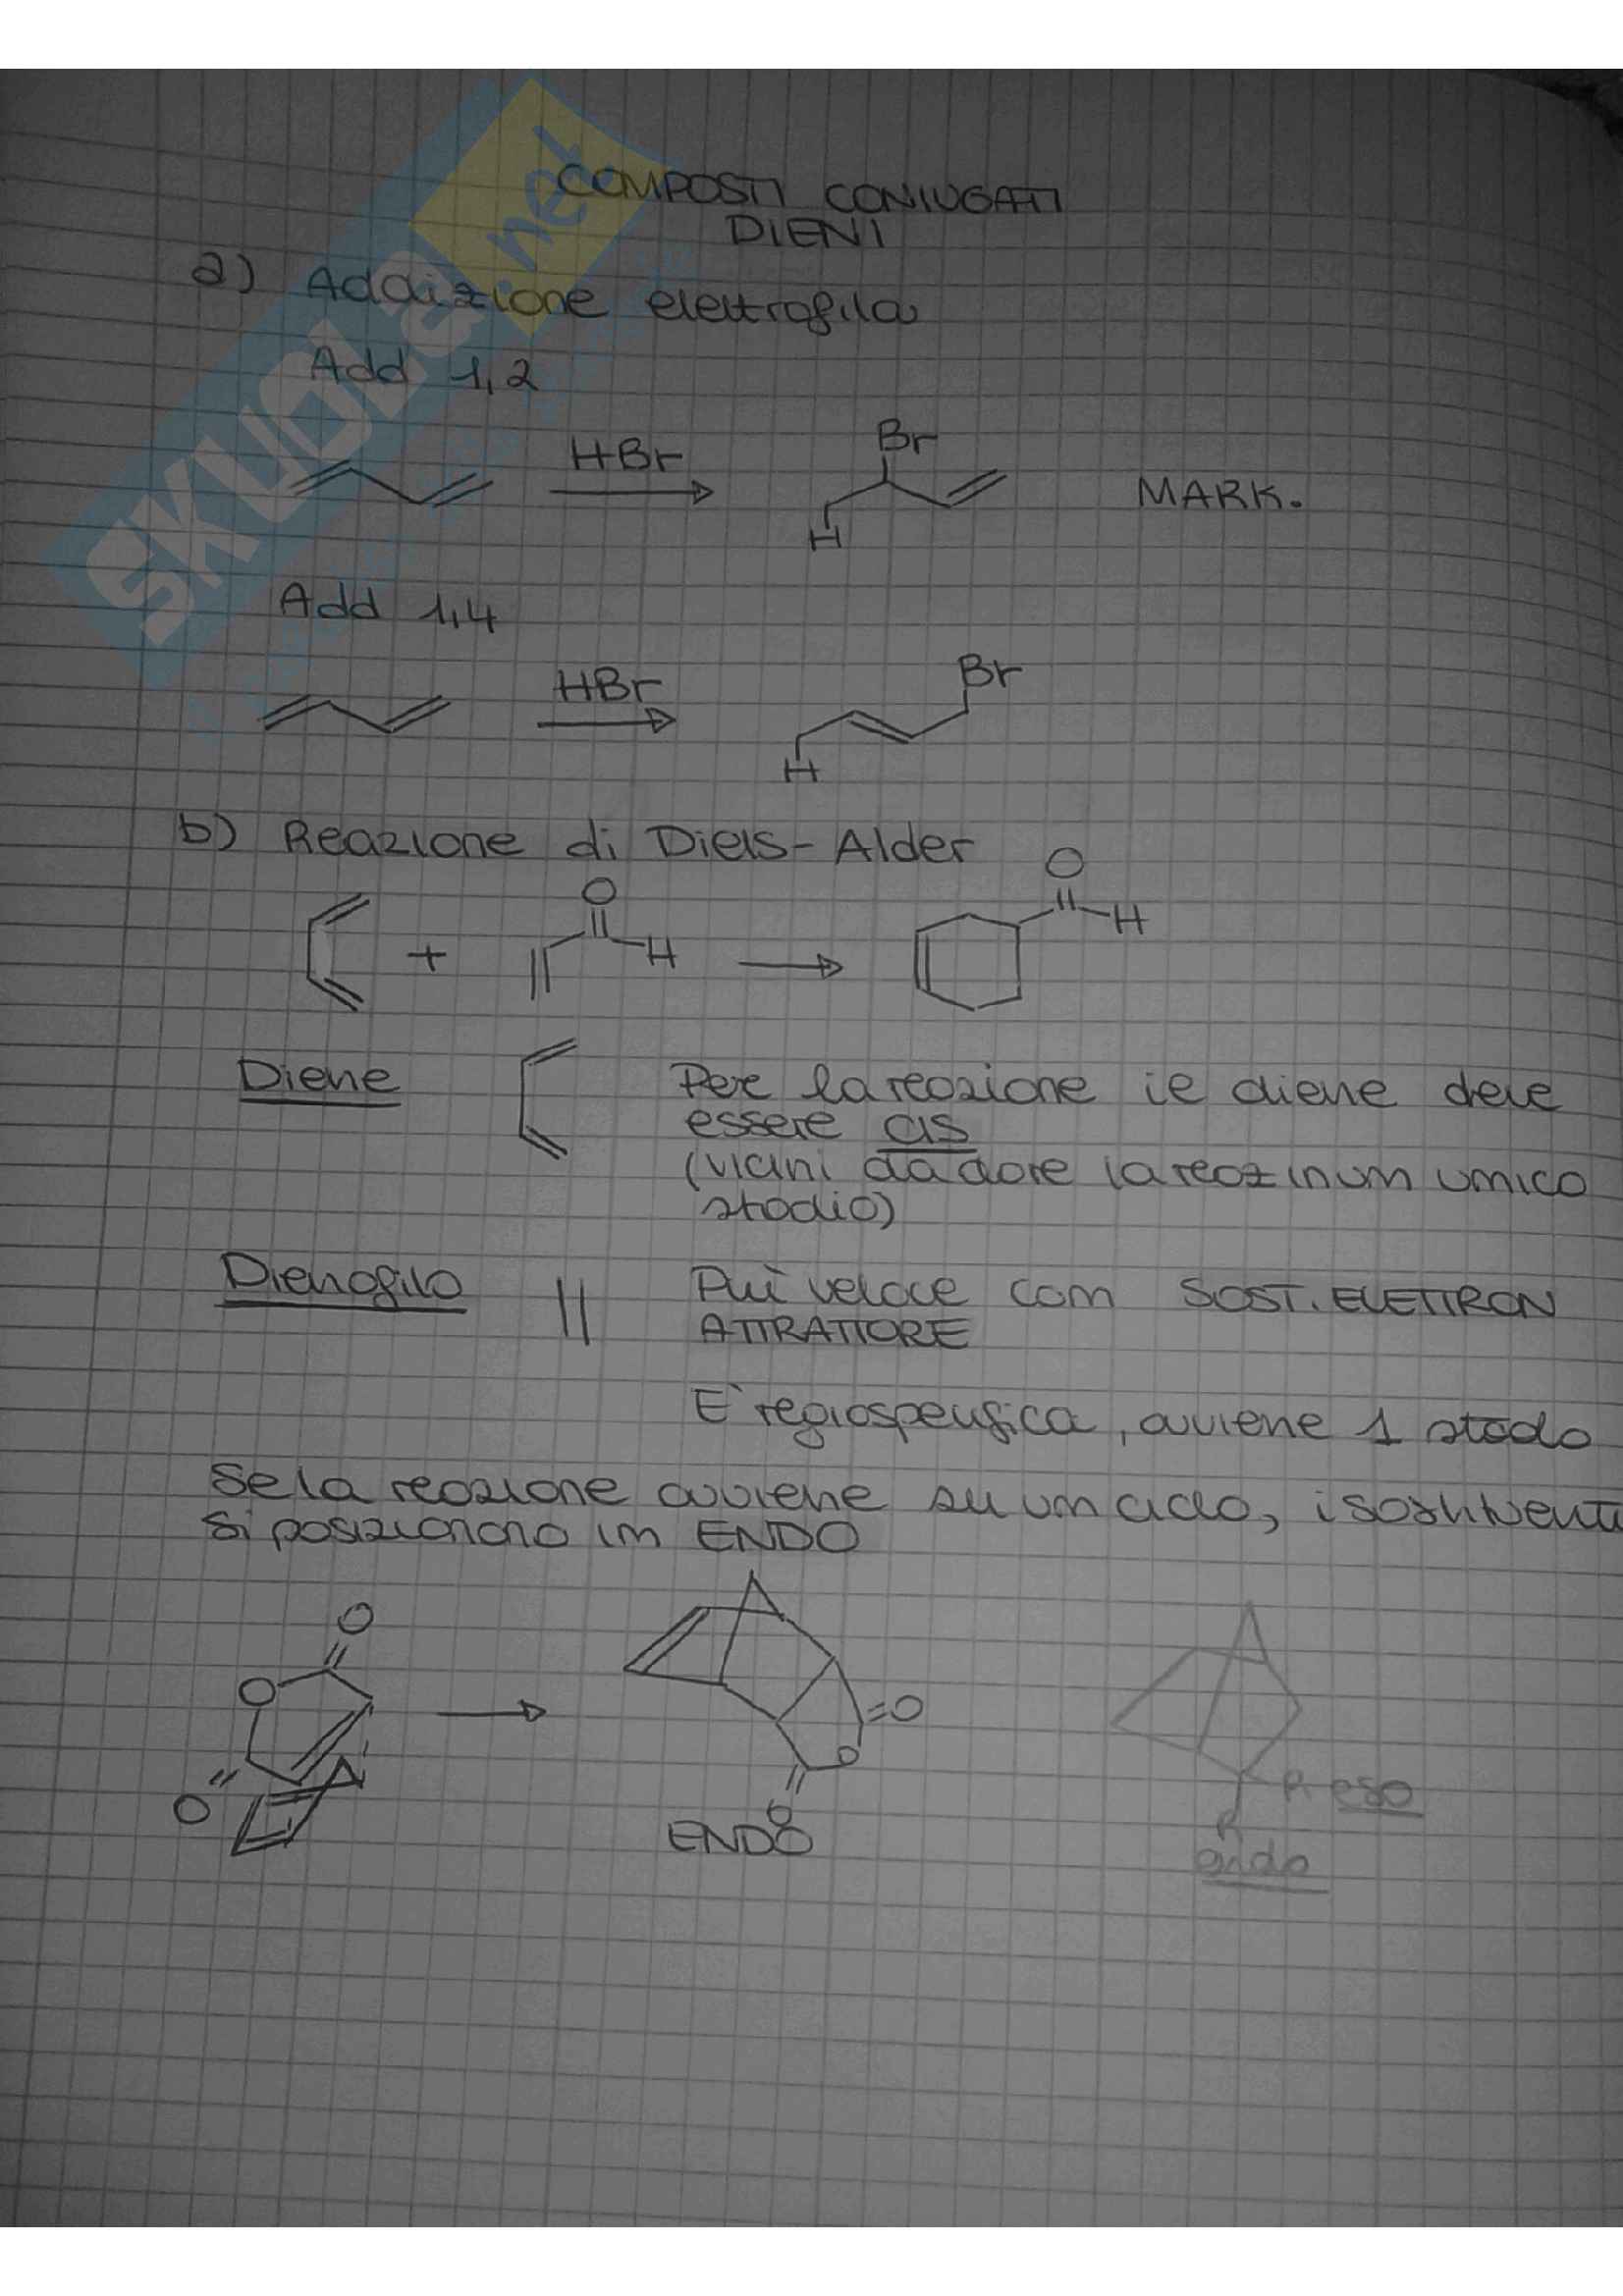 COMPOSTI CONIUGATI
DIENI
a) Addizione elettrofila
Add 1,2
HBr
Br
H
MARK.
Add 1,4
HBr
Br
H
b) Reazione di Diels-Alder
O
H
+
O
H
Diene
Per la reazione il diene deve
essere cis
(vicini da dare la reaz in un unico
stadio)
Dienofilo
Più veloce con SOST. ELETTRON
ATTRATTORE
E' regiospecifica, avviene 1 stadio
Se la reazione avviene su un ciclo, i sostituenti
si posizionano in ENDO
O
O
O
O
O
O
ENDO
R eso
R
endo
SKUOLA.net